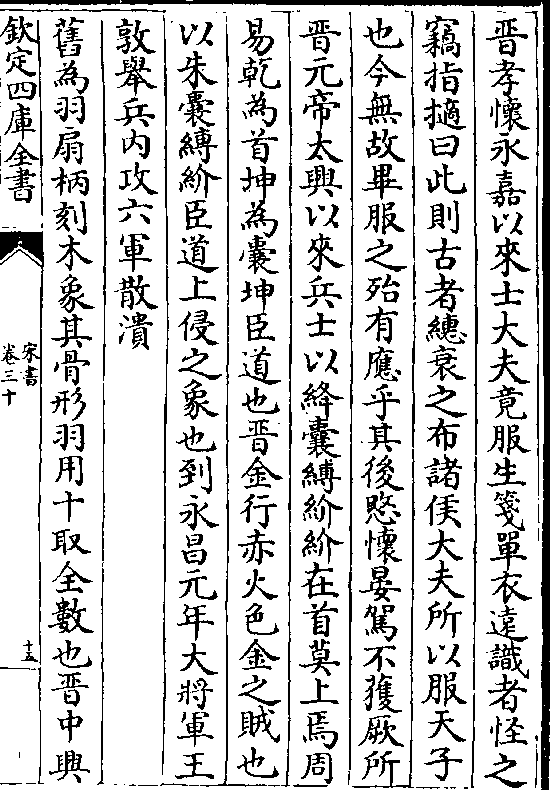 晋孝懷永嘉以來士大夫竟服生箋單衣遠識者怪之
竊指擿曰此則古者繐衰之布諸侯大夫所以服天子
也今無故畢服之殆有應乎其後愍懷晏駕不獲厥所
晉元帝太興以來兵士以絳囊縛紒紒在首莫上焉周
易乾為首坤為囊坤臣道也晉金行赤火色金之賊也
以朱囊縛紒臣道上侵之象也到永昌元年大將軍王
敦舉兵内攻六軍散潰
舊為羽扇柄刻木象其骨形羽用十取全數也晉中興
欽定四庫全書
宋書
卷三十
十五